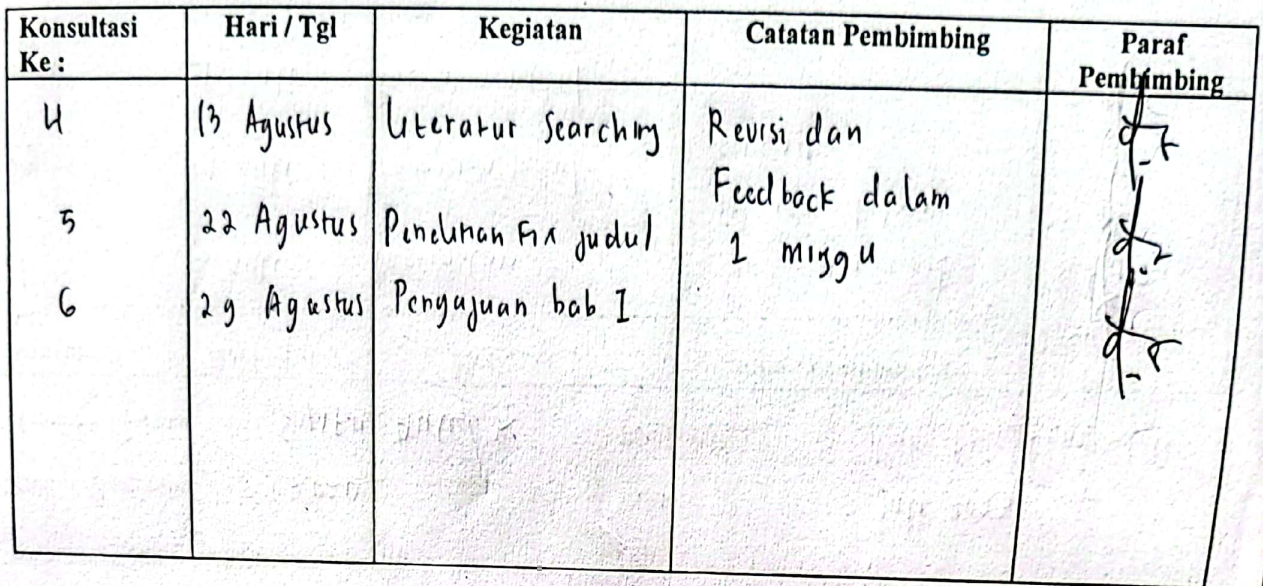 Konsultasi Ke : Hari / Tgl Kegiatan Catatan Pembimbing Paraf Pembimbing
4 13 Agustus Literatur Searching Revisi dan
Feedback dalam
5 22 Agustus Penelitian Fix judul 1 minggu
6 29 Agustus Pengajuan bab I